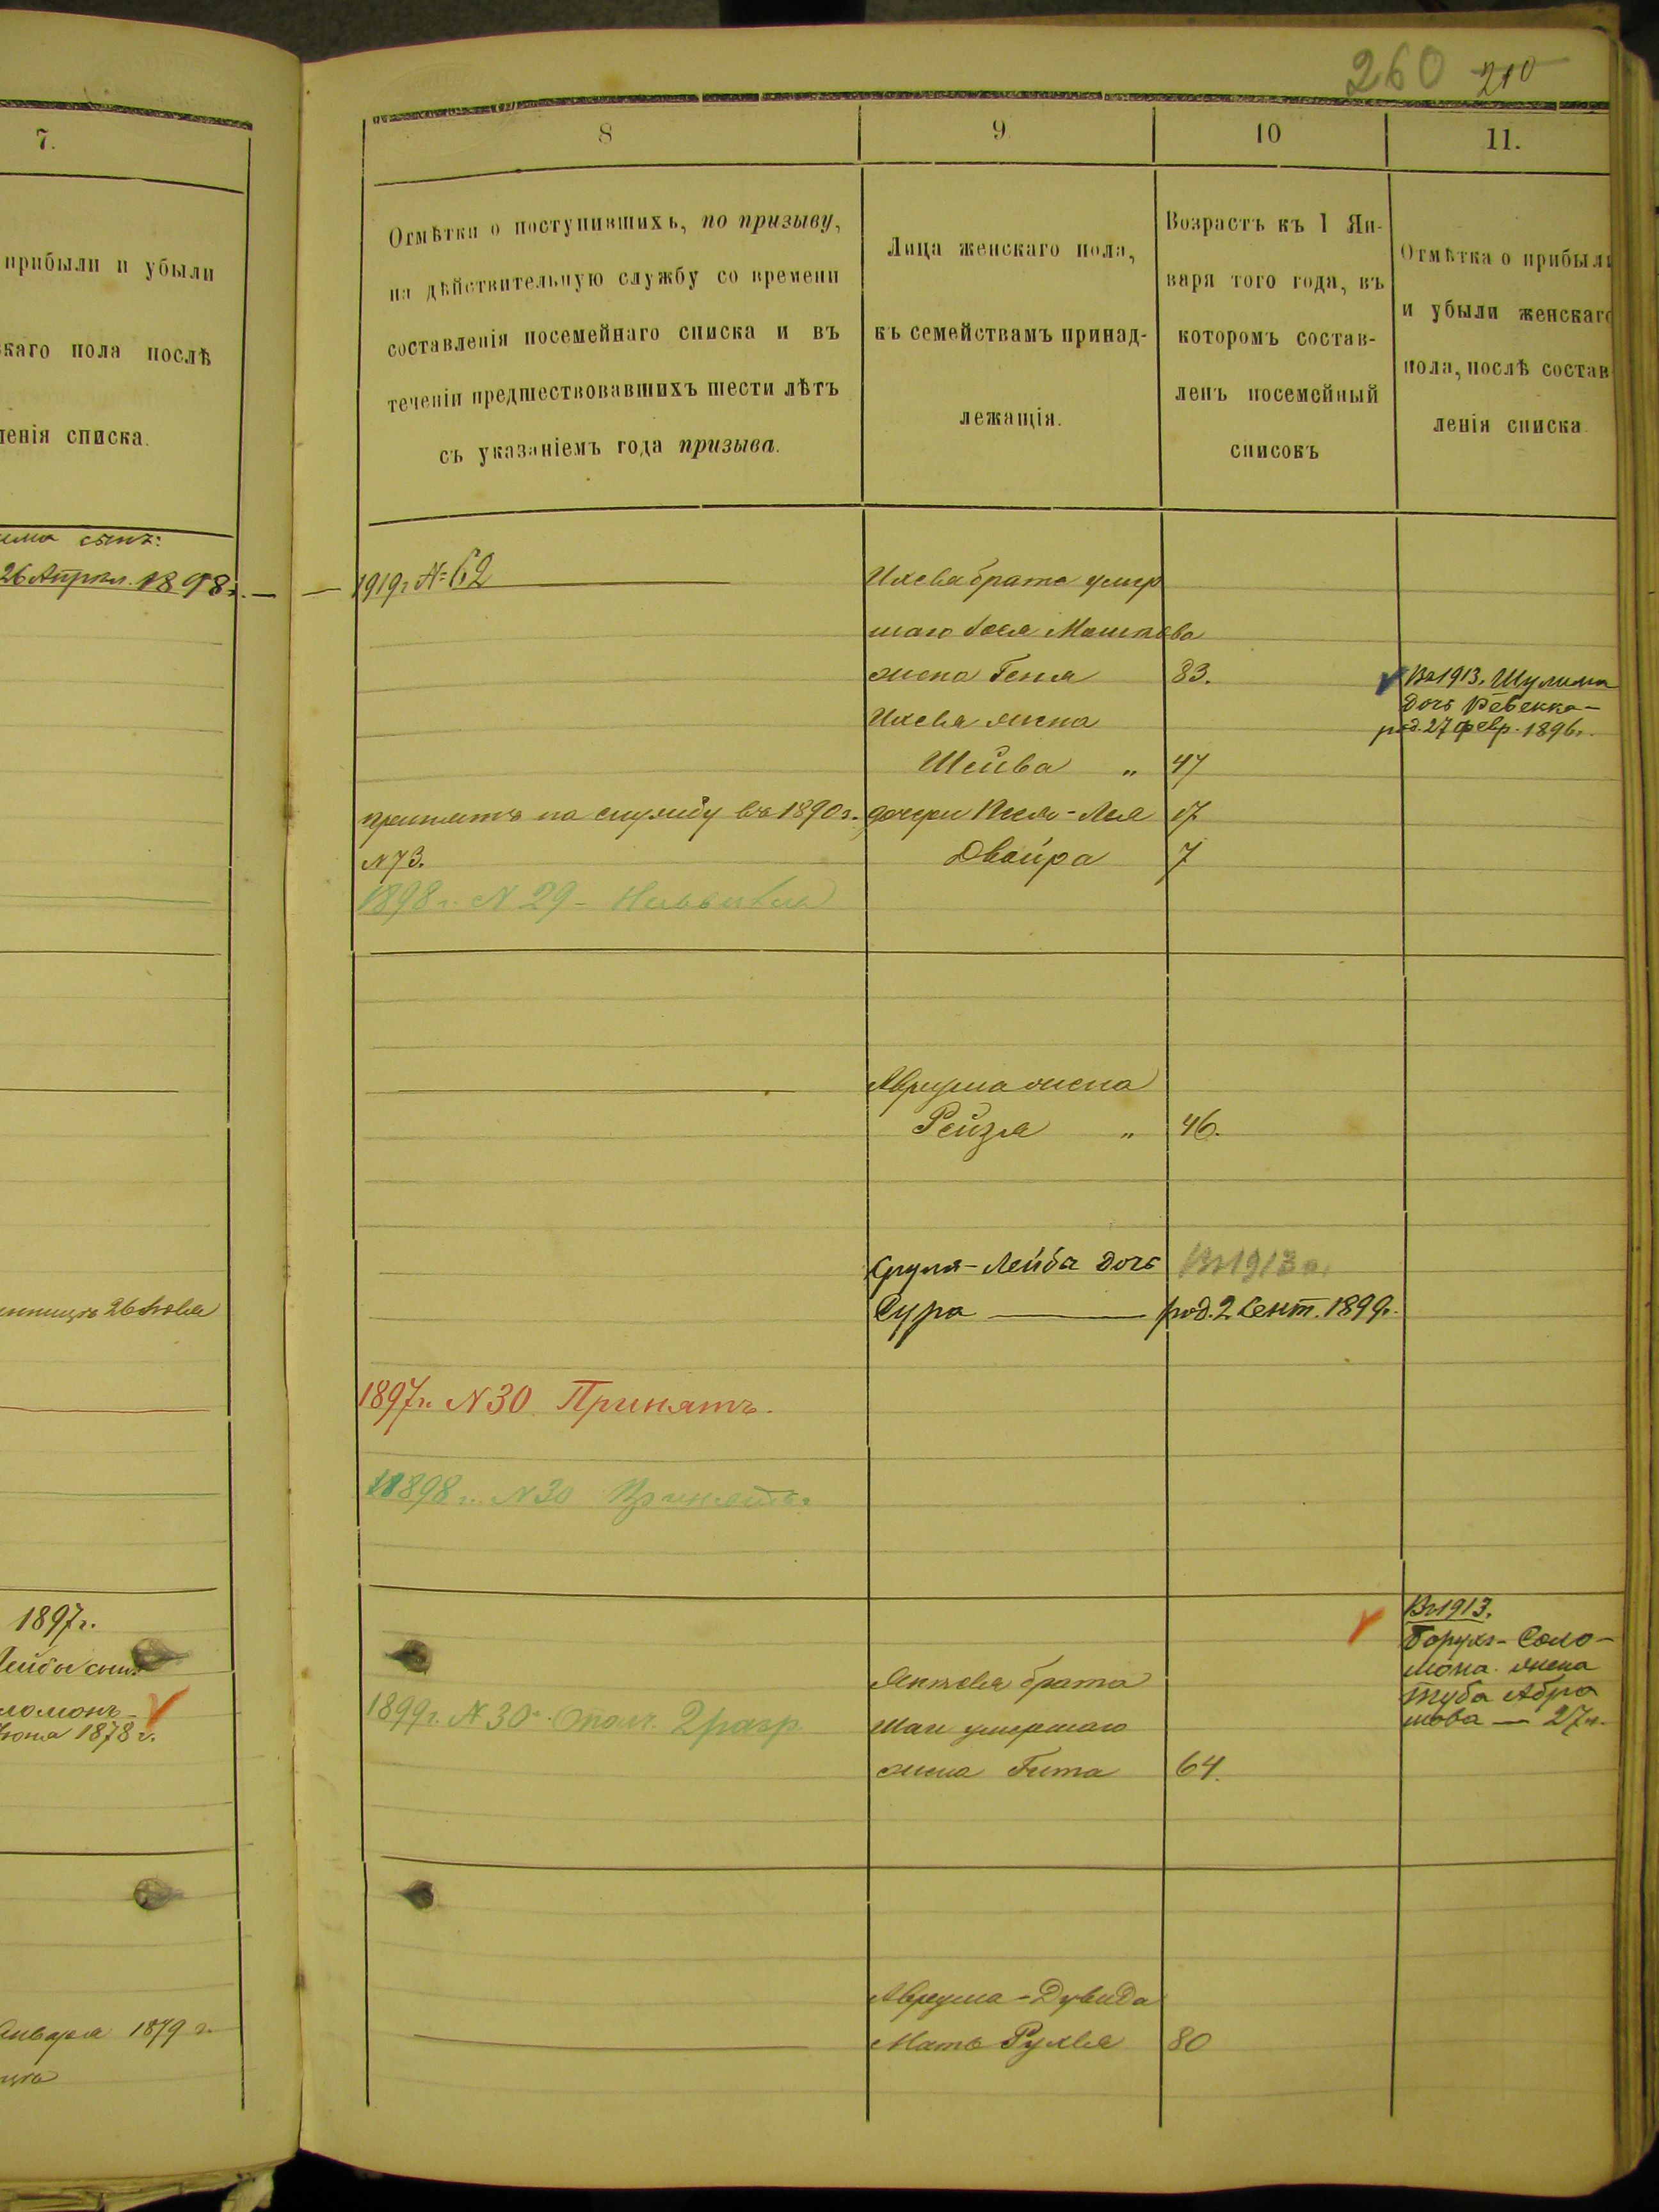 260 210
7.
прибыли и убыли
скаго пола послѣ
ленія списка.
сынъ:
26 Апрѣл. 1898 г. —
26 Іюля
1897 г.
Лейбы сынъ
ломонъ-
Іюня 1878 г.
Января 1879 г.
8
Отмѣтки о поступившихъ, по призыву,
на дѣйствительную службу со времени
составленія посемейнаго списка и въ
теченіи предшествовавшихъ шести лѣтъ
съ указаніемъ года призыва.
— 1919 г № 62
принятъ на службу въ 1890 г.
N 73.
1898 г. N 29 -
1897 г. N 30 Принятъ.
1898 г. N 30 Принятъ.
1899 г. N 30 Опол. 2 разр
9.
Лица женскаго пола,
къ семействамъ принад-
лежащія.
брата умер
шаго Мошкова
жена Геня
жена
Шейва "
дочери Песя-Лея
Двойра
Аврума жена
Рейзя "
Сруля-Лейба дочь
Сура —
Янкеля брата
Шаи умершаго
жена Гита
Аврума-Дувида
Мать Рухля
10
Возрастъ къ 1 Ян-
варя того года, въ
которомъ состав-
ленъ посемейный
списокъ
83.
47
17
7
46.
Въ 1913 г.
род. 2 Сент. 1899 г.
64.
80
11.
Отмѣтка о прибыли
и убыли женскаго
пола, послѣ состав
ленія списка
Въ 1913. Шулима
дочь Ревекка-
род. 27 февр. 1896 г.
Въ 1913.
Борухъ-Соло-
мона жена
Туба Абра
мова — 27 л.